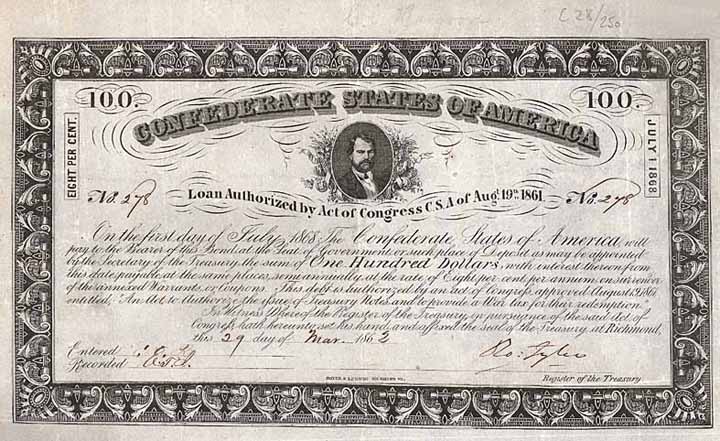 C 28/250
100. 100.
CONFEDERATE STATES OF AMERICA
EIGHT PER CENT.
JULY 1 1868
No. 278 No. 278
Loan Authorized by Act of Congress C.S.A of Augt. 19th. 1861
On the first day of July, 1868, The Confederate States of America will
pay to the Bearer of this Bond at the Seat of Government or such place of Deposit as may be appointed
by the Secretary of the Treasury the sum of One Hundred Dollars, with interest thereon from
this date, payable at the same places, semi annually, at the rate of Eight per cent per annum on surrender
of the annexed Warrants or Coupons. This debt is authorized by an act of Congress approved August 19, 1861
entitled, "An Act to Authorize the issue of Treasury Notes and to provide a War tax for their redemption."
In Witness Whereof the Register of the Treasury, in pursuance of the said Act of
Congress hath hereunto set his hand, and affixed the seal of the Treasury, at Richmond,
this 29 day of Mar. 1862
Entered
Recorded
Ro: Tyler
Register of the Treasury